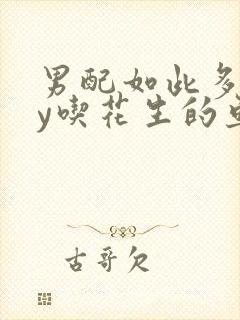 男配如此多
y喫花生的
古哥欠